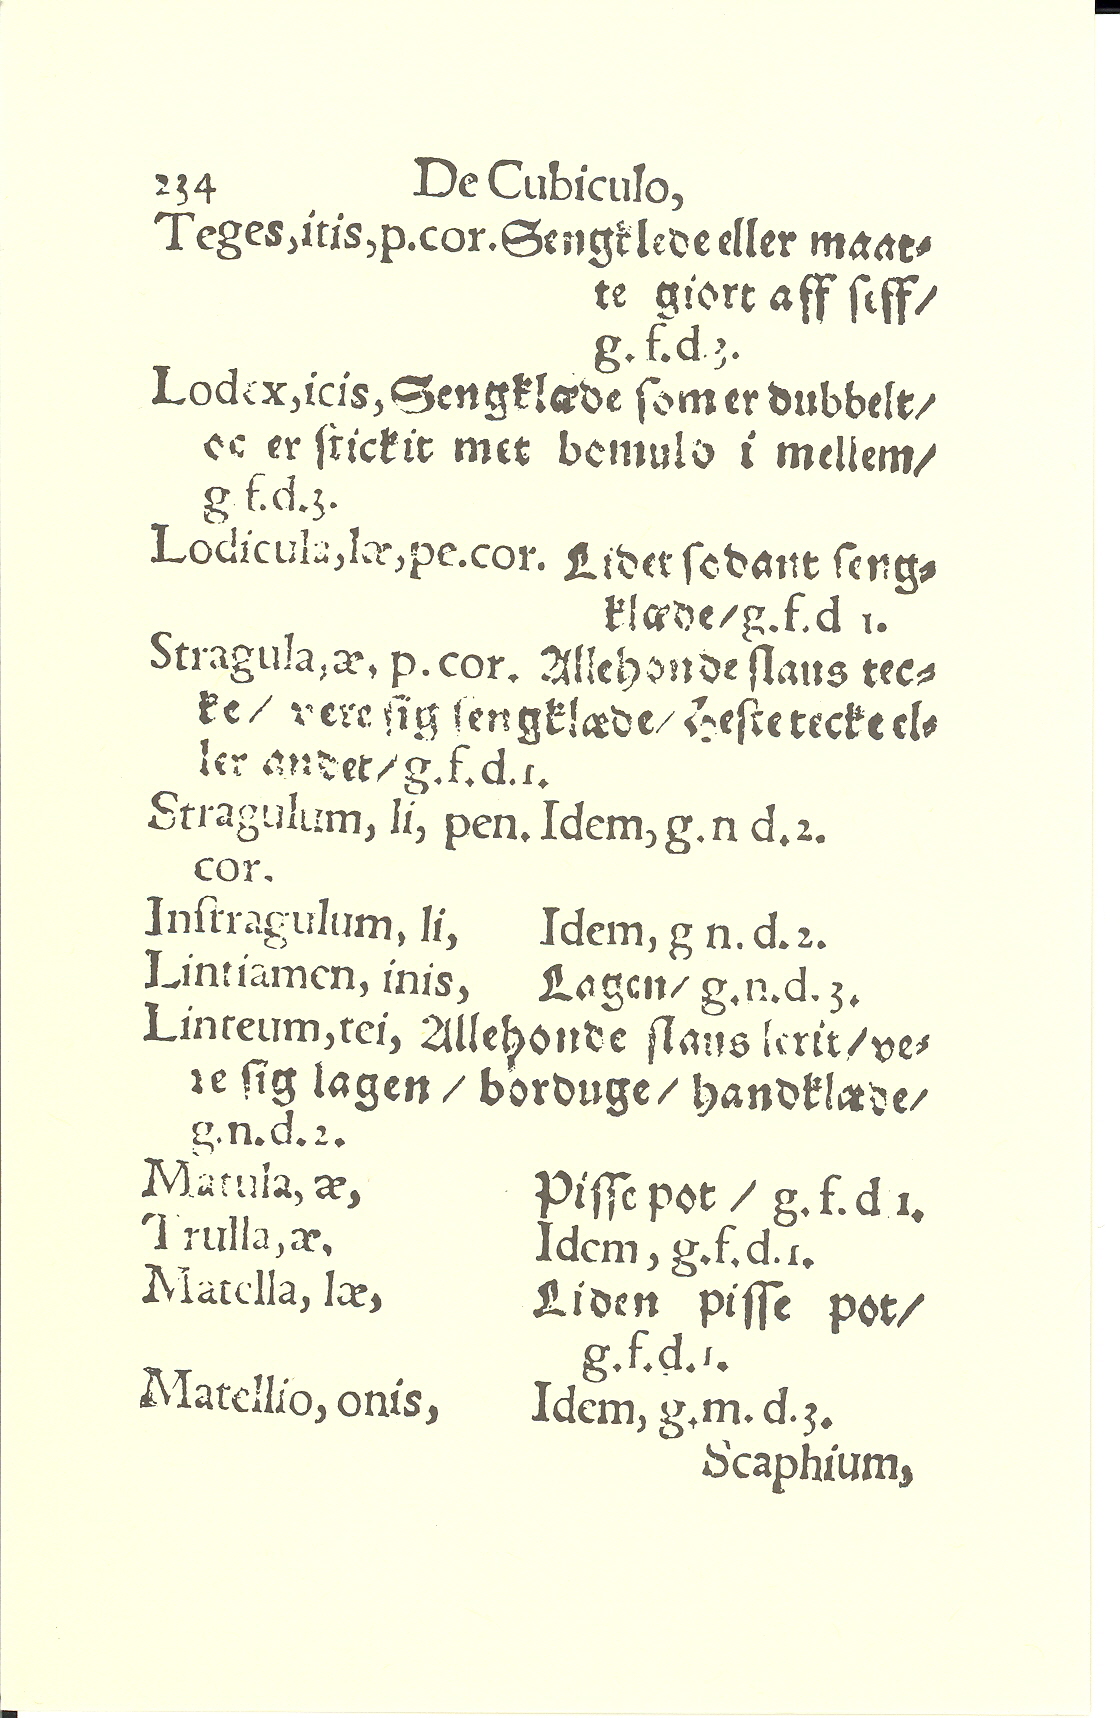 234 De Cubiculo,
Teges,itis,p.cor.Sengklede eller maat⸗
te giort aff siff/
g. f.d.3.
Lodex,icis,Sengklæde som er dubbelt/
oc er stickit met bomuld i mellem/
g f.d.3.
Lodicula,læ,pe.cor. Lidet sodant seng⸗
klæde/g.f.d 1.
Stragula,æ, p.cor. Allehonde slaus tec⸗
ke/ vere sig sengklæde/ Hestetecke el⸗
ler andet/g.f.d.1.
Stragulum, li, pen. Idem,g.n d.2.
cor.
Instragulum, li, Idem, g n.d.2.
Lintiamen, inis, Lagen/ g.n.d.3.
Linteum,tei, Allehonde slaus lerit/ve⸗
re sig lagen / borduge/ handklæde/
g.n.d.2.
Matula, æ, Pisse pot / g.f.d 1.
Trulla,æ, Idem, g.f.d.1.
Matella, læ, Liden pisse pot/
g.f.d.1.
Matellio, onis, Idem, g.m.d.3.
Scaphium,